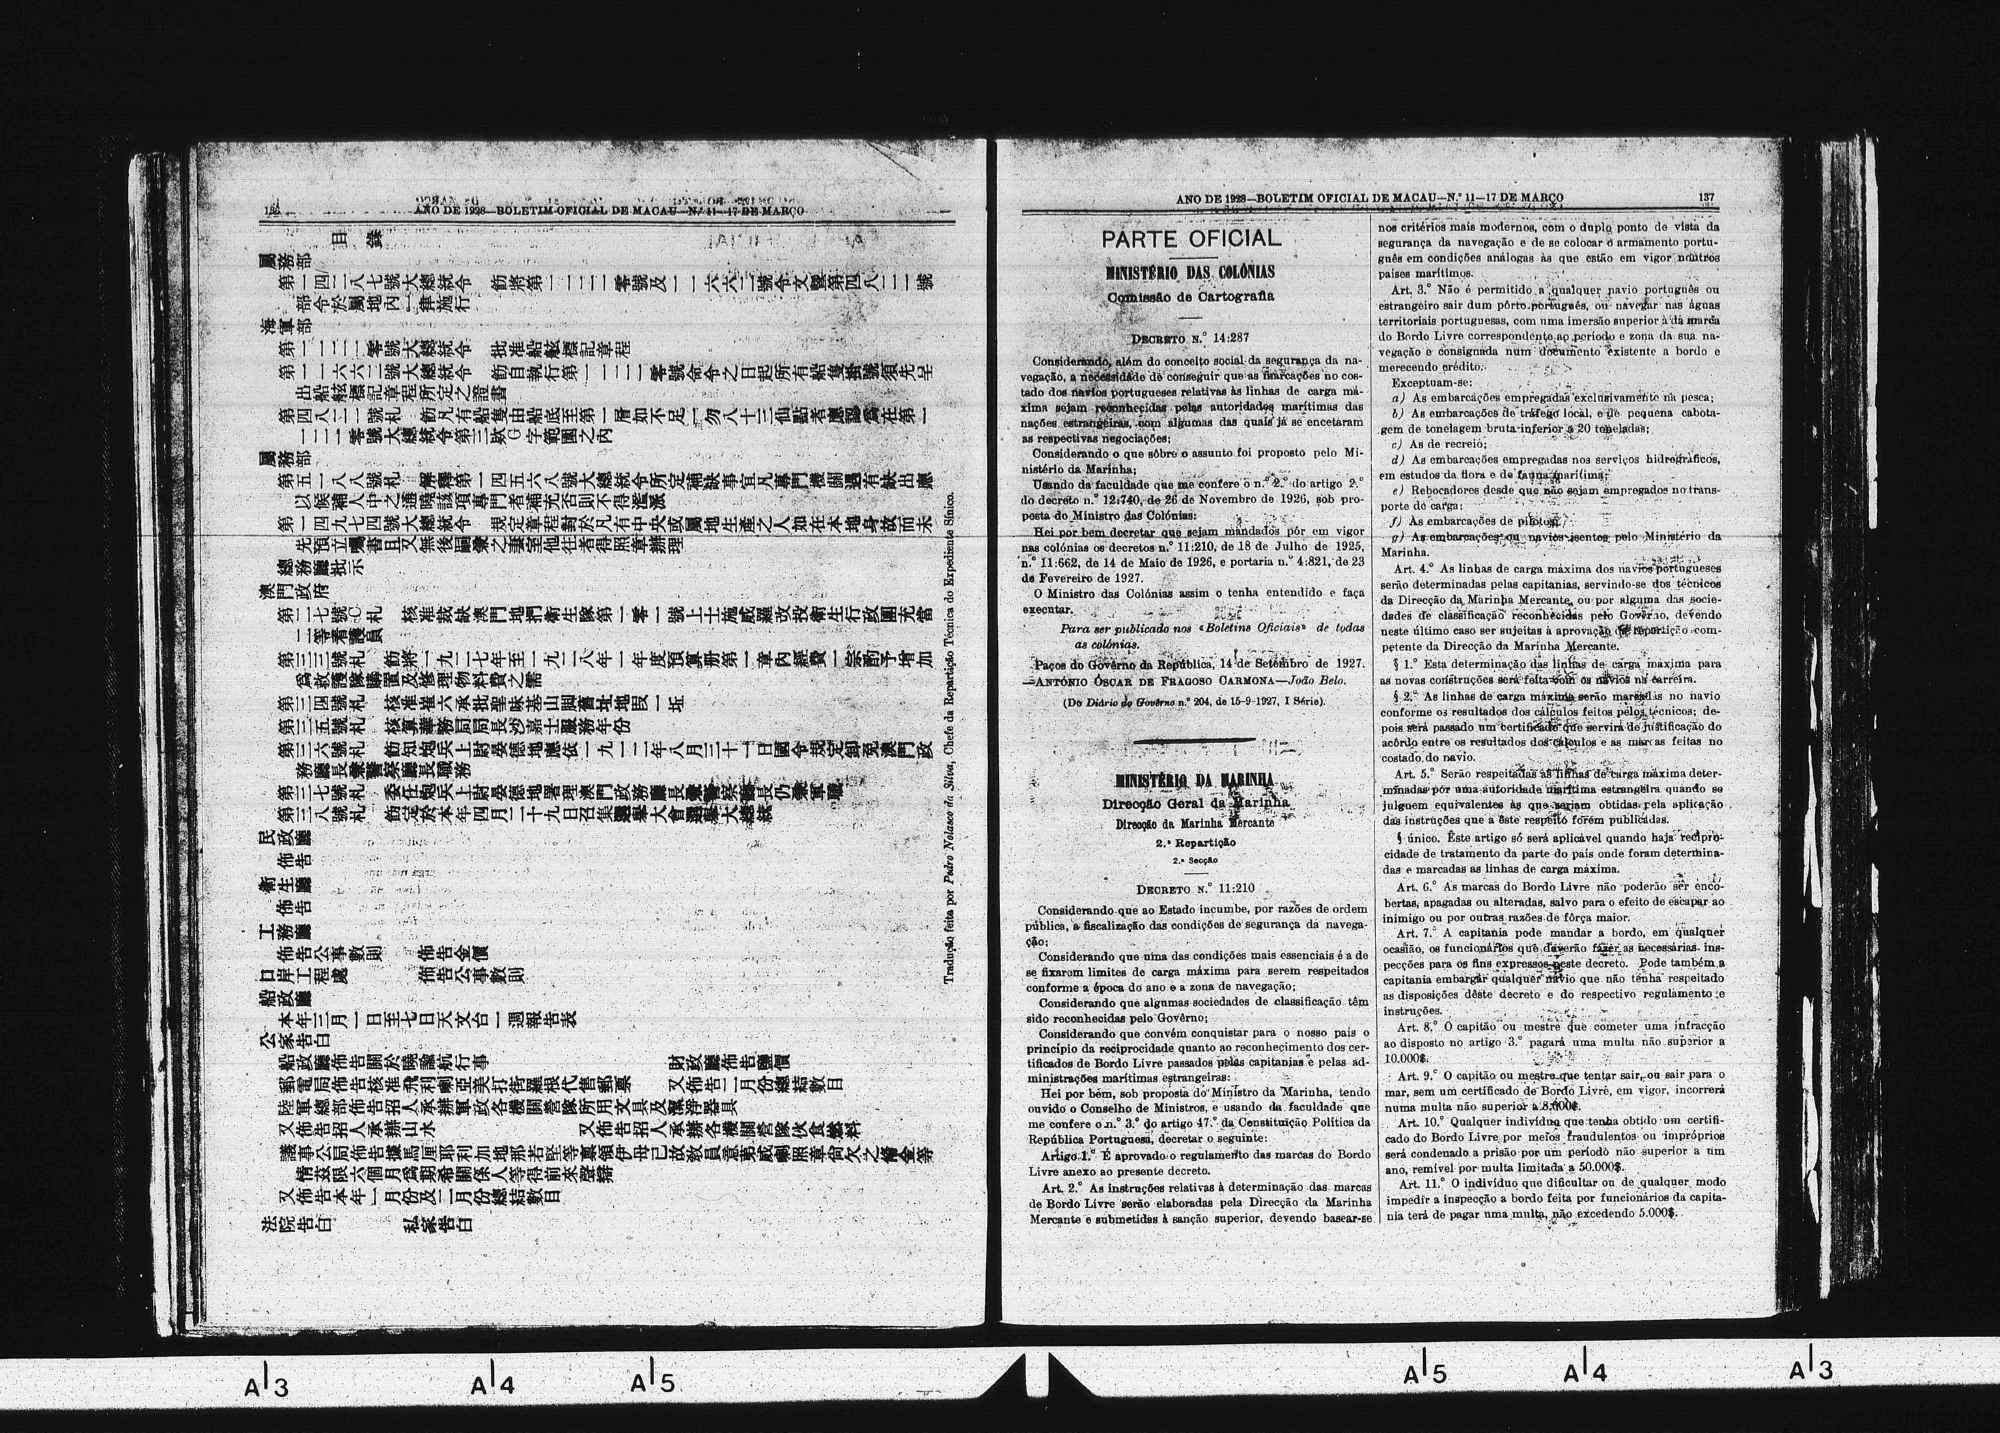 ANO DE 1928—BOLETIM OFICIAL DE MACAU—N.º 11—17 DE MARÇO
目錄
屬務部
第一四二八七號大總統令 飭將第一一二一零號及一一六六二號令文暨第四八二一號
部令於屬地內一律施行
海軍部
第一一二一零號大總統令 批准船舷標記章程
第一一六六二號大總統令 飭自執行第一一二一零號命令之日起所有船隻掛號須先呈
出船舷標記章程所定之證書
第四八二一號札 飭凡有船隻由船底至第一層如不足一勿八十三仙點者應認爲在第一
一二一零號大總統令第三欵G字範圍之內
屬務部
第五一八八號札 解釋第一四五六八號大總統令所定補缺事宜凡專門機關遇有缺出應
以候補人中之通曉該項專門者補充否則不得濫派
第一四九七四號大總統令 規定章程對於凡有中央或屬地生產之人如在本地身故而未
先預立囑書且又無後嗣兼之妻室他往者得照章辦理
總務廳批示
澳門政府
第二七號C札 核准裁缺澳門地捫衛生隊第一零一號上士施威羅改投衛生行政團充當
二等看護員
第三三號札 飭將一九二七年至一九二八年一年度預算册第一章內經費一宗酌予增加
爲救護隊購置及修理物料費之需
第三四號札 核准崔六承批聖味基山閱舊址地段一坵
第三五號札 核算華務局局長沙嘉士服務年份
第三六號札 飭知炮兵上尉晏德地應依一九一二年八月三十一日國令規定卸免澳門政
務廳長兼警察廳長職務
第三七號札 委任炮兵上尉晏德地署理澳門政務廳長兼警察廳長仍兼軍職
第三八號札 飭定於本年四月二十九日召集選舉大會選舉大總統
民政廳
佈告
衛生廳
佈告
工務廳
佈告公事數則 佈告金價
口岸工程處 佈告公事數則
船政廳
本年三月一日至七日天文台一週報告表
公家告白
船政廳佈告關於曉諭航行事 財政廳佈告鹽價
郵電局佈告核准飛利喇亞美打街羅根代售郵票 又佈告二月份總結數目
陸軍總部佈告招人承辦軍政各機關營隊所用文具及潔淨器具
又佈告招人承辦山水 又佈告招人承辦各機關營隊伙食燃料
議事公局佈告據馬厘耶利加地那若堅等稟領伊母已故敎員意第威喇照章尙欠之俻金等
情茲限六個月爲期希關係人等得前來聲辯
又佈告本年一月份及二月份總結數目
法院告白 私家告白
Tradução feita por Pedro Nolasco da Silva, Chefe da Repartição Técnica do Expediente Sínico.
ANO DE 1928—BOLETIM OFICIAL DE MACAU—N.º 11—17 DE MARÇO 137
PARTE OFICIAL
MINISTÉRIO DAS COLÓNIAS
Comissão de Cartografia
DECRETO N.º 14:287
Considerando, além do conceito social da segurança da na-
vegação, a necessidade de conseguir que as marcações no cos-
tado dos navios portugueses relativas às linhas de carga má-
xima sejam reconhecidas pelas autoridades marítimas das
nações estrangeiras, com algumas das quais já se encetaram
as respectivas negociações;
Considerando o que sôbre o assunto foi proposto pelo Mi-
nistério da Marinha;
Usando da faculdade que me confere o n.º 2.º do artigo 2.º
do decreto n.º 12:740, de 26 de Novembro de 1926, sob pro-
posta do Ministro das Colónias:
Hei por bem decretar que sejam mandados pôr em vigor
nas colónias os decretos n.º 11:210, de 18 de Julho de 1925,
n.º 11:662, de 14 de Maio de 1926, e portaria n.º 4:821, de 23
de Fevereiro de 1927.
O Ministro das Colónias assim o tenha entendido e faça
executar.
Para ser publicado nos «Boletins Oficiais» de todas
as colónias.
Paços do Govêrno da República, 14 de Setembro de 1927.
—ANTÓNIO ÓSCAR DE FRAGOSO CARMONA—João Belo.
(Do Diário do Govêrno n.º 204, de 15-9-1927, I Série).
MINISTÉRIO DA MARINHA
Direcção Geral da Marinha
Direcção da Marinha Mercante
2.ª Repartição
2.ª Secção
DECRETO N.º 11:210
Considerando que ao Estado incumbe, por razões de ordem
pública, a fiscalização das condições de segurança da navega-
ção;
Considerando que uma das condições mais essenciais é a de
se fixarem limites de carga máxima para serem respeitados
conforme a época do ano e a zona de navegação;
Considerando que algumas sociedades de classificação têm
sido reconhecidas pelo Govêrno;
Considerando que convém conquistar para o nosso país o
princípio da reciprocidade quanto ao reconhecimento dos cer-
tificados de Bordo Livre passados pelas capitanias e pelas ad-
ministrações marítimas estrangeiras:
Hei por bem, sob proposta do Ministro da Marinha, tendo
ouvido o Conselho de Ministros, e usando da faculdade que
me confere o n.º 3.º do artigo 47.º da Constituição Política da
República Portuguesa, decretar o seguinte:
Artigo 1.º É aprovado o regulamento das marcas do Bordo
Livre anexo ao presente decreto.
Art. 2.º As instruções relativas à determinação das marcas
de Bordo Livre serão elaboradas pela Direcção da Marinha
Mercante e submetidas à sanção superior, devendo basear-se
nos critérios mais modernos, com o duplo ponto de vista da
segurança da navegação e de se colocar o armamento portu-
guês em condições análogas às que estão em vigor noutros
países marítimos.
Art. 3.º Não é permitido a qualquer navio português ou
estrangeiro sair dum pôrto português, ou navegar nas águas
territoriais portuguesas, com uma imersão superior à da marca
do Bordo Livre correspondente ao período e zona da sua na-
vegação e consignada num documento existente a bordo e
merecendo crédito.
Exceptuam-se:
a) As embarcações empregadas exclusivamente na pesca;
b) As embarcações de tráfego local, e de pequena cabota-
gem de tonelagem bruta inferior a 20 toneladas;
c) As de recreio;
d) As embarcações empregadas nos serviços hidrográficos,
em estudos da flora e de fauna marítima;
e) Rebocadores desde que não sejam empregados no trans-
porte de carga;
f) As embarcações de pilotos;
g) As embarcações ou navios isentos pelo Ministério da
Marinha.
Art. 4.º As linhas de carga máxima dos navios portugueses
serão determinadas pelas capitanias, servindo-se dos técnicos
da Direcção da Marinha Mercante, ou por alguma das socie-
dades de classificação reconhecidas pelo Govêrno, devendo
neste último caso ser sujeitas à aprovação da repartição com-
petente da Direcção da Marinha Mercante.
§ 1.º Esta determinação das linhas de carga máxima para
as novas construções será feita com os navios na carreira.
§ 2.º As linhas de carga máxima serão marcadas no navio
conforme os resultados dos cálculos feitos pelos técnicos; de-
pois será passado um certificado que servirá de justificação do
acôrdo entre os resultados dos cálculos e as marcas feitas no
costado do navio.
Art. 5.º Serão respeitadas as linhas de carga máxima deter-
minadas por uma autoridade marítima estrangeira quando se
julguem equivalentes às que seriam obtidas pela aplicação
das instruções que a êste respeito forem publicadas.
§ único. Êste artigo só será aplicável quando haja recipro-
cidade de tratamento da parte do país onde foram determina-
das e marcadas as linhas de carga máxima.
Art. 6.º As marcas do Bordo Livre não poderão ser enco-
bertas, apagadas ou alteradas, salvo para o efeito de escapar ao
inimigo ou por outras razões de fôrça maior.
Art. 7.º A capitania pode mandar a bordo, em qualquer
ocasião, os funcionários que deverão fazer as necessárias ins-
pecções para os fins expressos neste decreto. Pode também a
capitania embargar qualquer navio que não tenha respeitado
as disposições dêste decreto e do respectivo regulamento e
instruções.
Art. 8.º O capitão ou mestre que cometer uma infracção
ao disposto no artigo 3.º pagará uma multa não superior a
10.000$.
Art. 9.º O capitão ou mestre que tentar sair, ou sair para o
mar, sem um certificado de Bordo Livre, em vigor, incorrerá
numa multa não superior a 8.000$.
Art. 10.º Qualquer indivíduo que tenha obtido um certifi-
cado do Bordo Livre por meios fraudulentos ou impróprios
será condenado a prisão por um período não superior a um
ano, remível por multa limitada a 50.000$.
Art. 11.º O indivíduo que dificultar ou de qualquer modo
impedir a inspecção a bordo feita por funcionários da capita-
nia terá de pagar uma multa, não excedendo 5.000$.
A3 A4 A5 A5 A4 A3